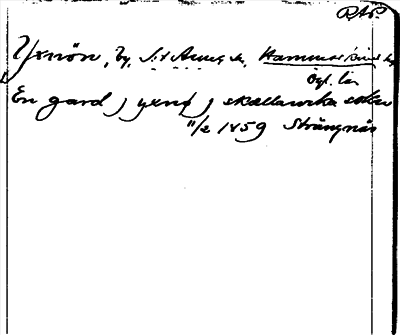 RAP.
Yxnön, by, S:t Anne sn, Hammarkinds hd
Ögl. län
En gard j yxnø j skællawika sokn
11/2 1459 Strängnäs